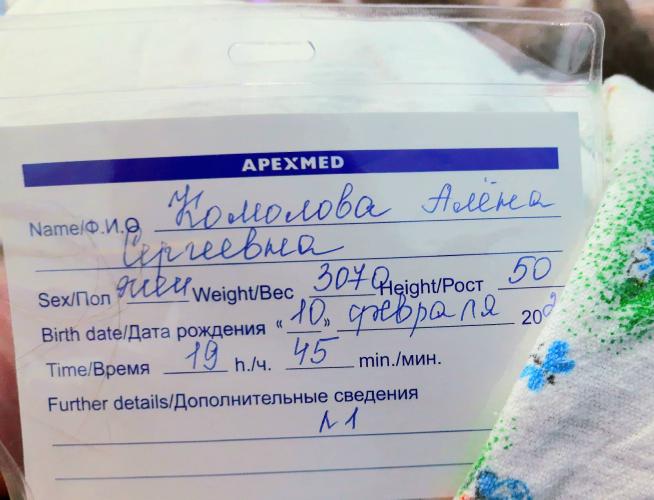 APEXMED
Name/Ф.И.О Комолова Алёна
Сергеевна
Sex/Пол жен Weight/Вес 3070 Height/Рост 50
Birth date/Дата рождения « 10 » февраля 202
Time/Время 19 h./ч. 45 min./мин.
Further details/Дополнительные сведения